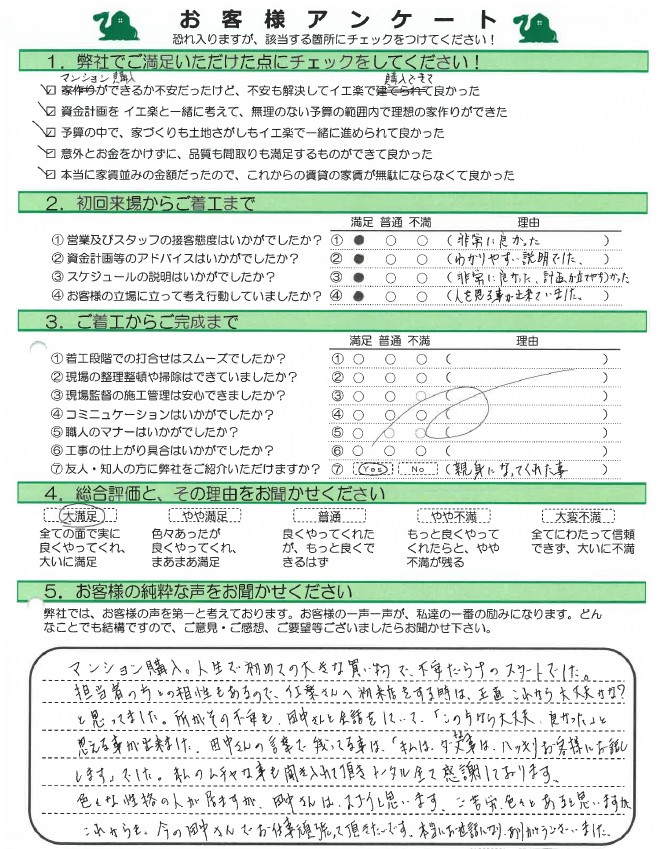 お客様アンケート
恐れ入りますが、該当する箇所にチェックをつけてください！
１．弊社でご満足いただけた点にチェックをしてください！
マンション購入 購入できて
家作りができるか不安だったけど、不安も解決してイエ楽で建てられて良かった
資金計画を イエ楽と一緒に考えて、無理のない予算の範囲内で理想の家作りができた
予算の中で、家づくりも土地さがしもイエ楽で一緒に進められて良かった
意外とお金をかけずに、品質も間取りも満足するものができて良かった
本当に家賃並みの金額だったので、これからの賃貸の家賃が無駄にならなくて良かった
２．初回来場からご着工まで
満足 普通 不満 理由
①営業及びスタッフの接客態度はいかがでしたか？ ① ● ○ ○ （非常に良かった）
②資金計画等のアドバイスはいかがでしたか？ ② ● ○ ○ （わかりやすい説明でした、）
③スケジュールの説明はいかがでしたか？ ③ ● ○ ○ （非常に良かった、計画が立てやすかった
④お客様の立場に立って考え行動していましたか？ ④ ● ○ ○ （人を思う事が出来ていました。）
３．ご着工からご完成まで
満足 普通 不満 理由
①着工段階での打合せはスムーズでしたか？ ① ○ ○ ○ （ ）
②現場の整理整頓や掃除はできていましたか？ ② ○ ○ ○ （ ）
③現場監督の施工管理は安心できましたか？ ③ ○ ○ ○ （ ）
④コミニュケーションはいかがでしたか？ ④ ○ ○ ○ （ ）
⑤職人のマナーはいかがでしたか？ ⑤ ○ ○ ○ （ ）
⑥工事の仕上がり具合はいかがでしたか？ ⑥ ○ ○ ○ （ ）
⑦友人・知人の方に弊社をご紹介いただけますか？ ⑦ Yes No （親身になってくれた事）
４．総合評価と、その理由をお聞かせください
大満足 やや満足 普通 やや不満 大変不満
全ての面で実に 色々あったが 良くやってくれた もっと良くやって 全てにわたって信頼
良くやってくれ、 良くやってくれ、 が、もっと良くで くれたらと、やや できず、大いに不満
大いに満足 まあまあ満足 きるはず 不満が残る
５．お客様の純粋な声をお聞かせください
弊社では、お客様の声を第一と考えております。お客様の一声一声が、私達の一番の励みになります。どん
なことでも結構ですので、ご意見・ご感想、ご要望等ございましたらお聞かせ下さい。
マンション購入。人生で初めての大きな買い物で、不安だらけのスタートでした。
担当者の方との相性もあるので、イエ楽さんへ初来店をする時は、正直これから大丈夫かな？
と思ってました。所がその不安も、田中さんと会話をしていて、「この方なら大丈夫、良かった」と
思える事が出来ました。田中さんの言葉で残ってる事は、「私は、ダメな事は、ハッキリお客様にお話
します」でした。私のムチャな事も聞き入れて頂きトータル全て感謝しております。
色々な性格の人が居ますが、田中さんは、スゴイと思います。ご苦労色々とあると思いますが、
これからも、今の田中さんでお仕事頑張って頂きたいです。本当にお世話になり、ありがとうございました。